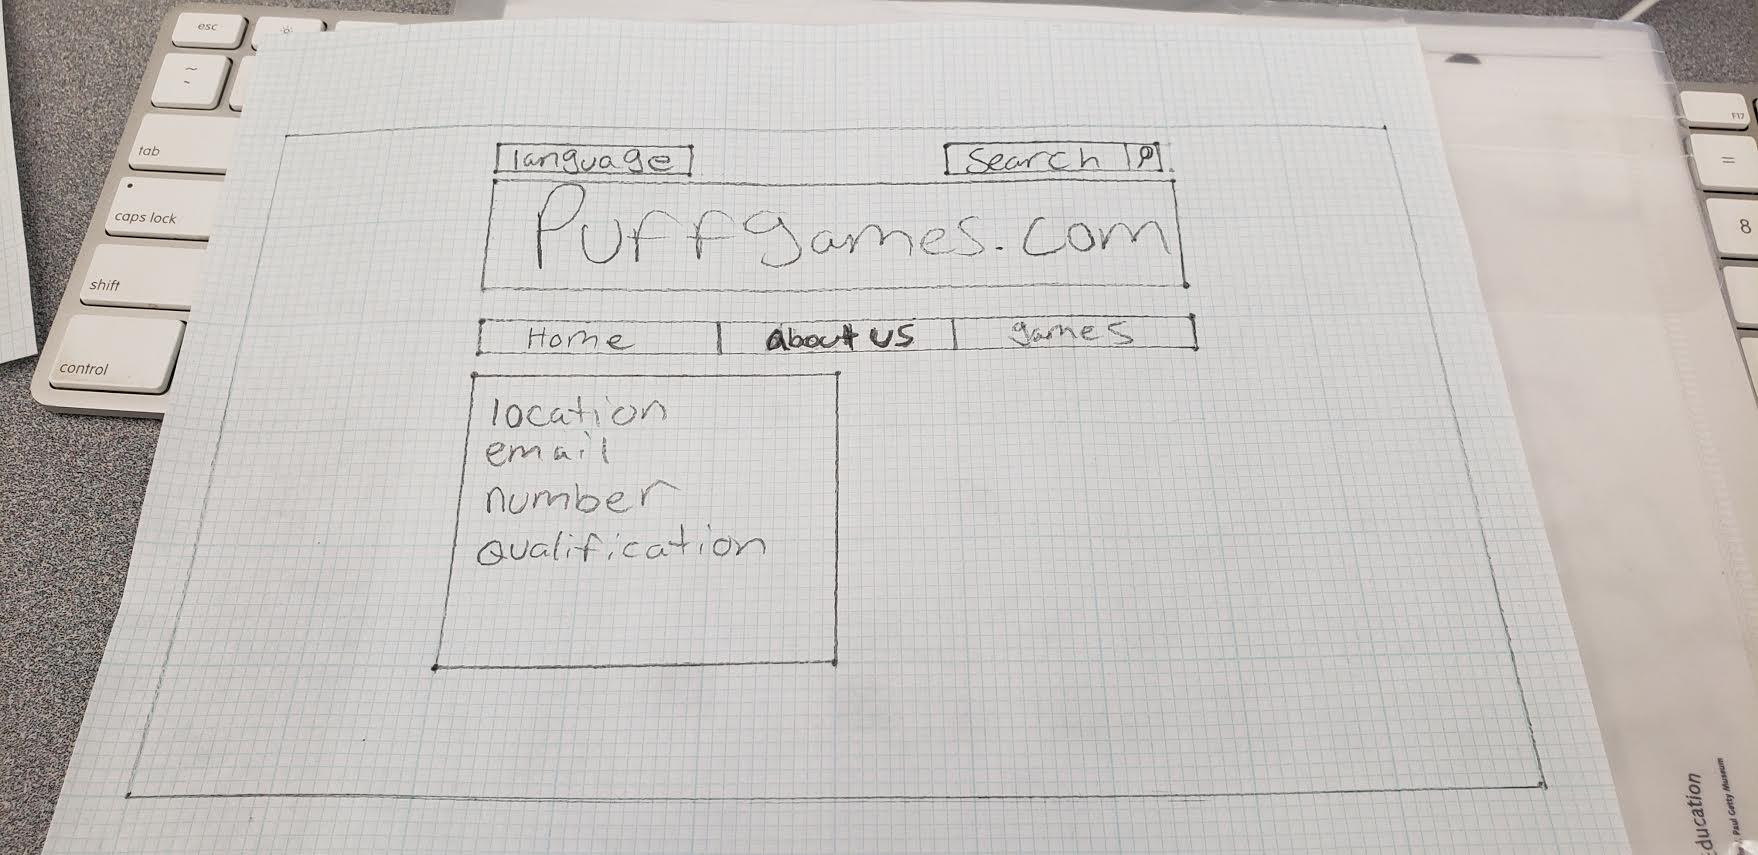 esc
~
tab
caps lock
shift
control
F17
=
8
language
Search
Puffgames.com
Home about us games
location
email
number
qualification
ducation
Paul Getty Museum